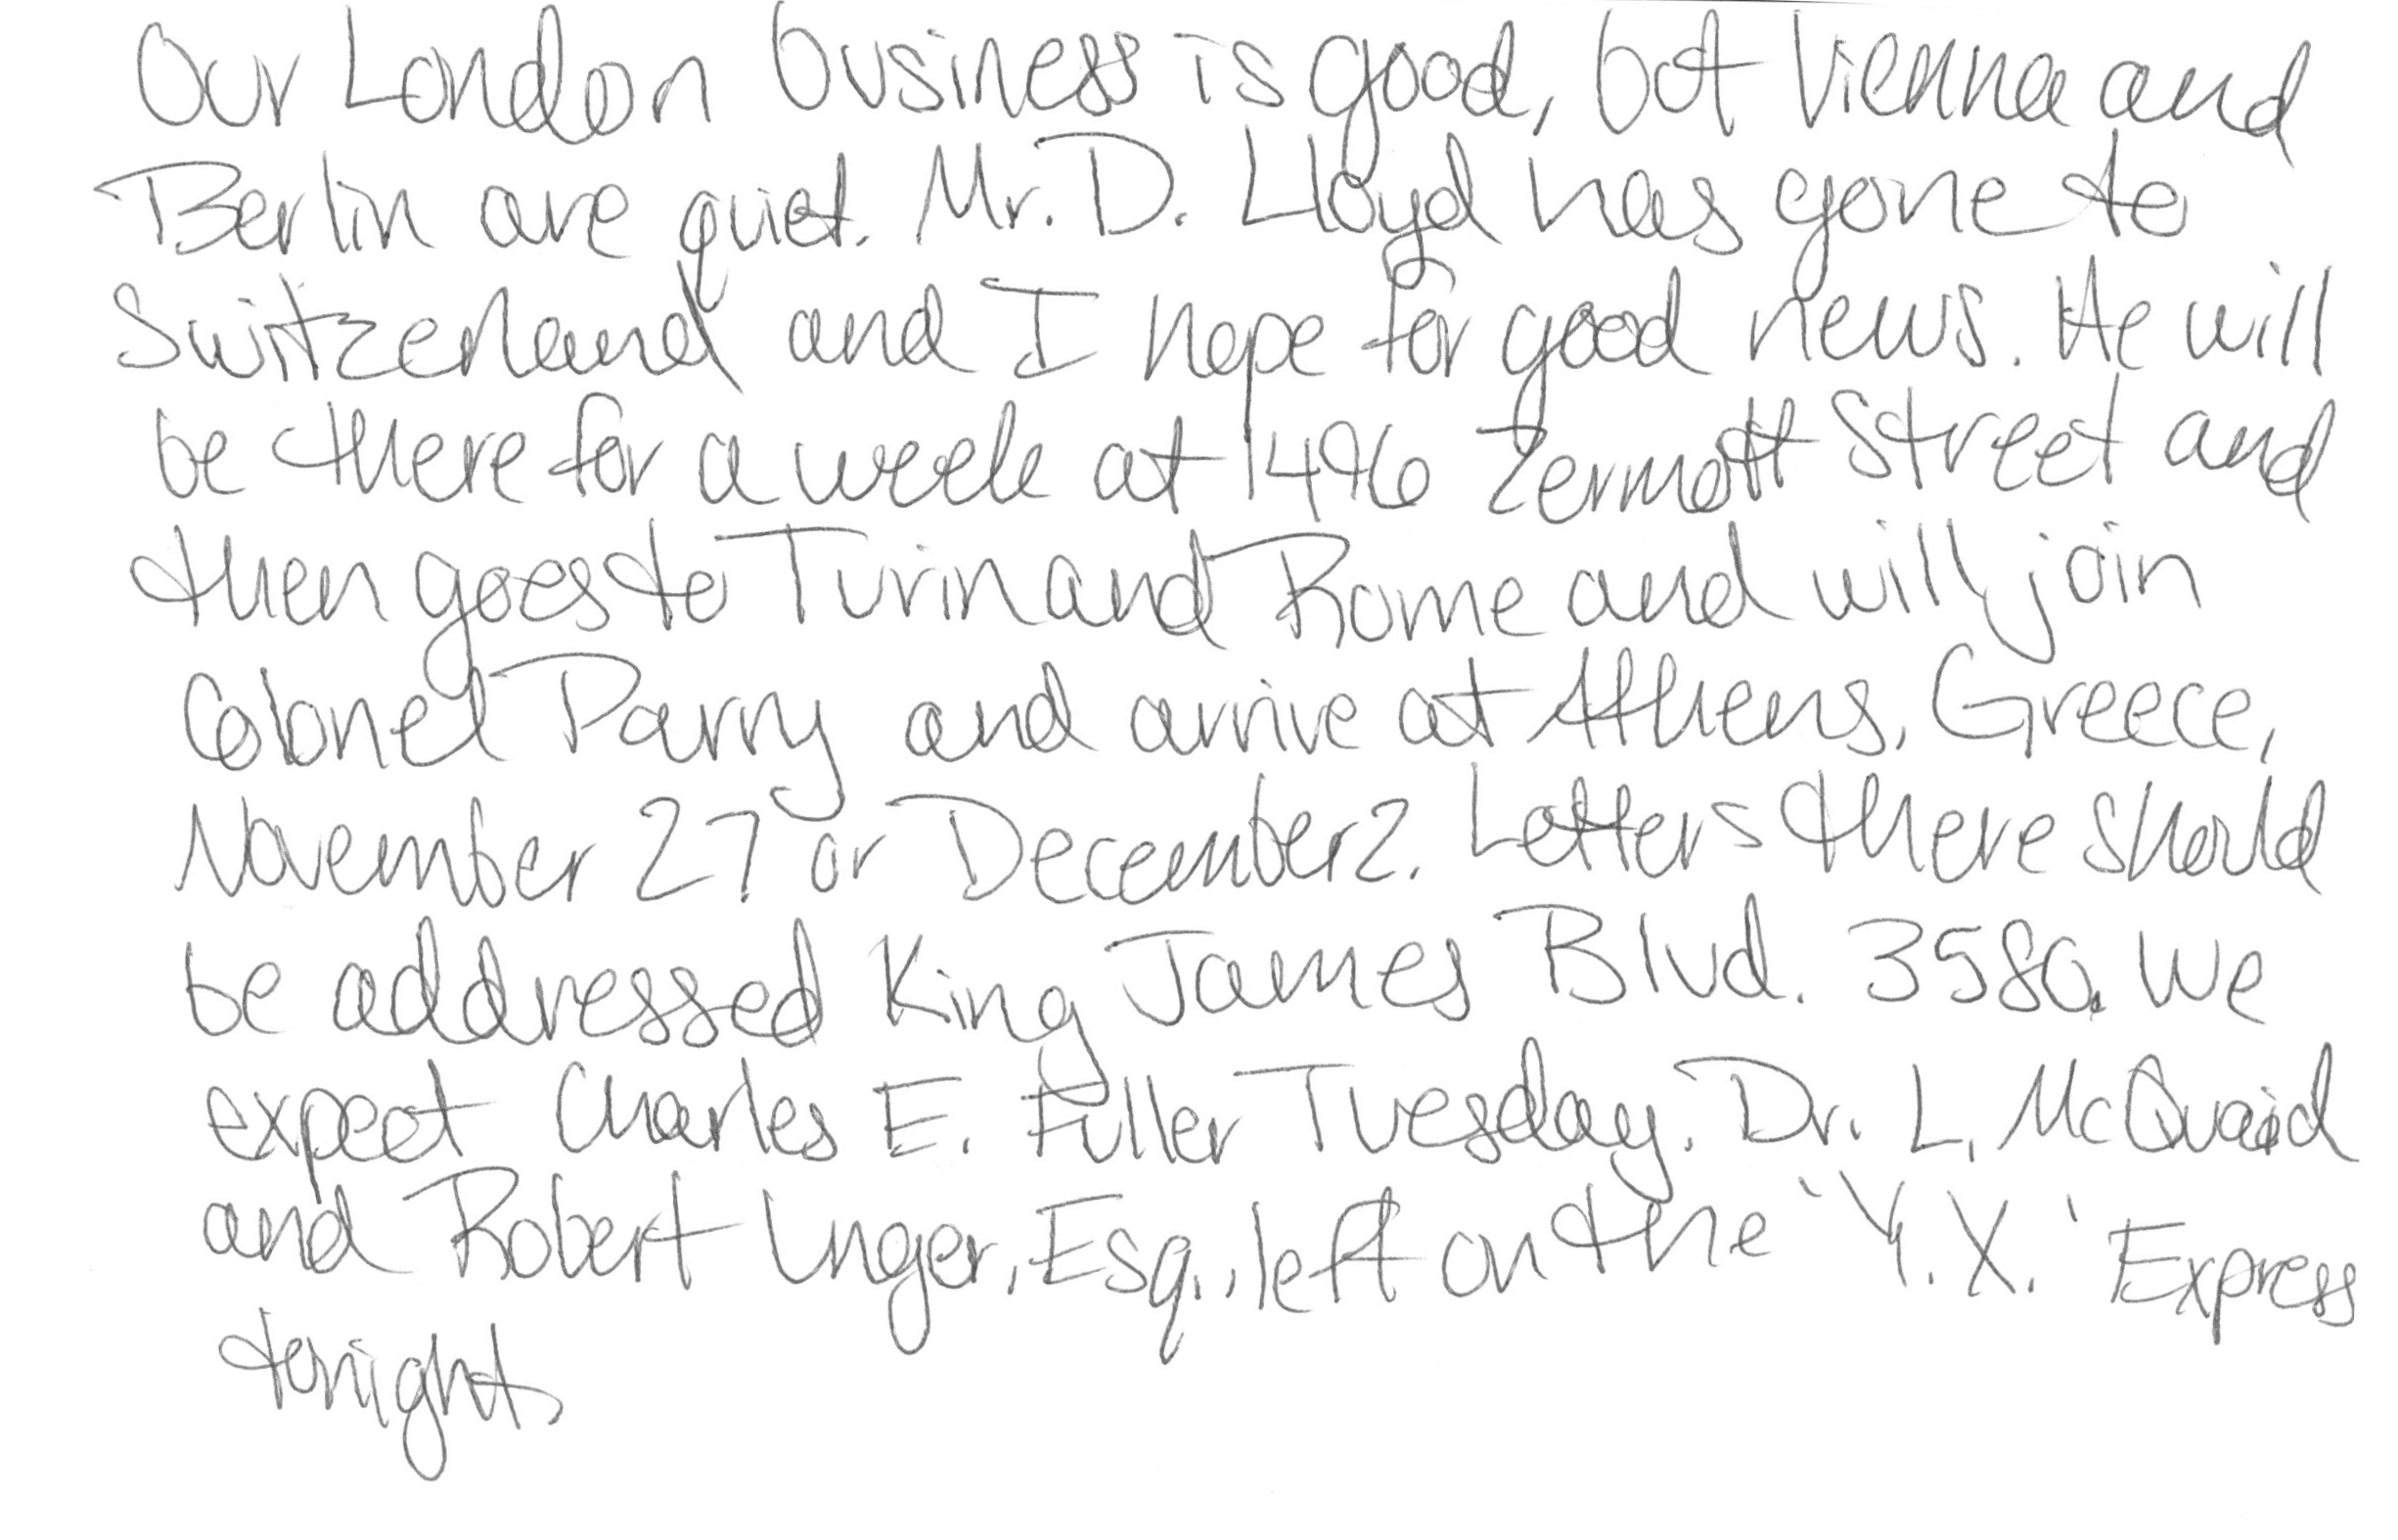 Our London business is good, but Vienna and
Berlin are quiet. Mr. D. Lloyd has gone to
Switzerland and I hope for good news. He will
be there for a week at 1496 Zermott Street and
then goes to Turin and Rome and will join
Colonel Parry and arrive at Athens, Greece,
November 27 or December 2. Letters there should
be addressed King James Blvd. 3580. We
expect Charles E. Fuller Tuesday. Dr. L. McQuaid
and Robert Unger, Esq., left on the 'Y. X.' Express
tonight.